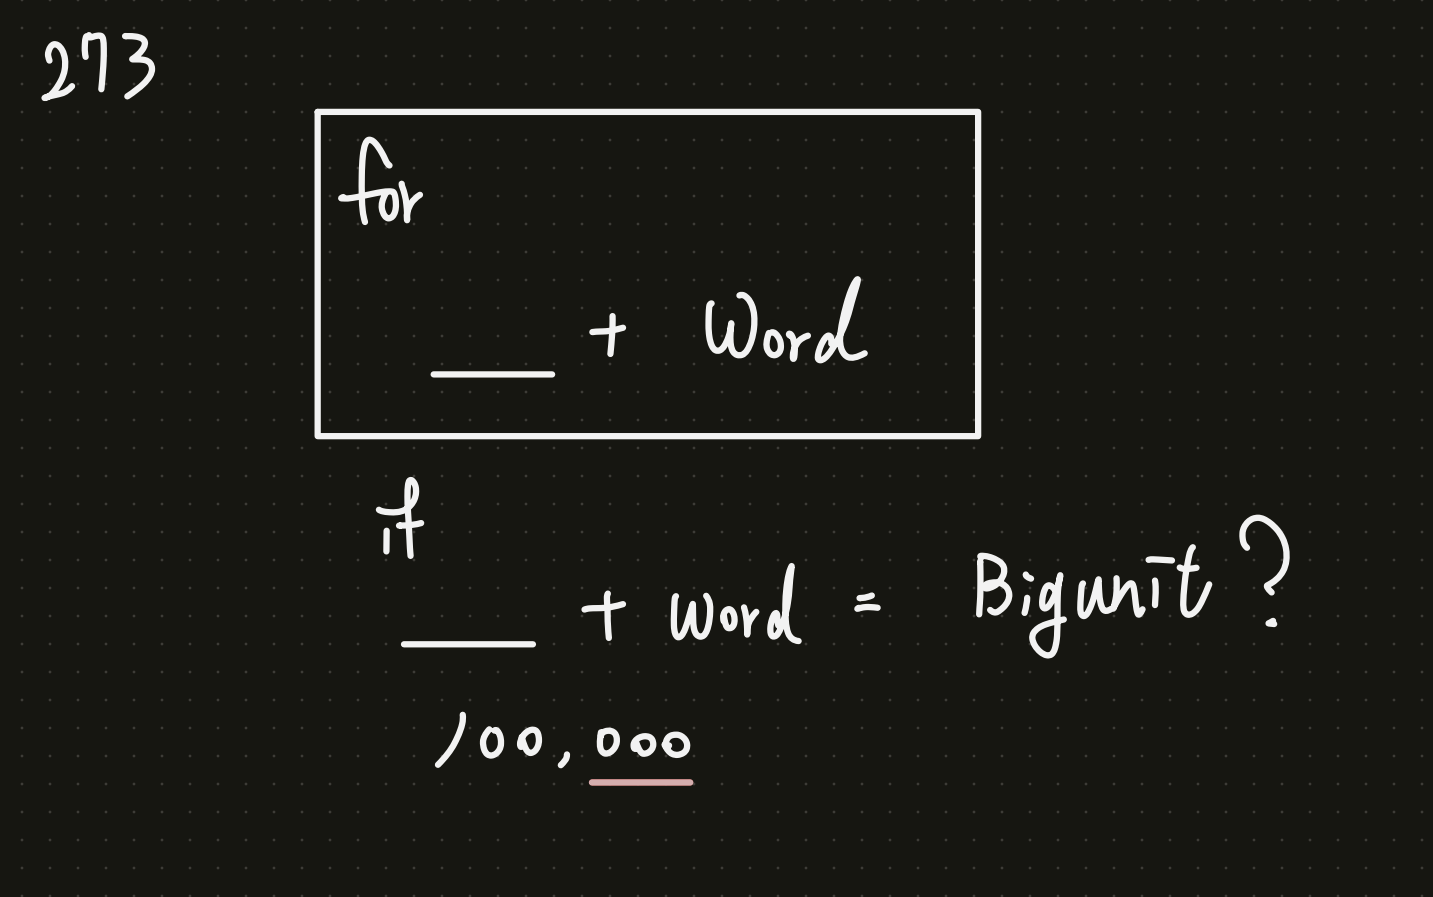 273
for
___ + Word
if
___ + word = Bigunit?
100,000